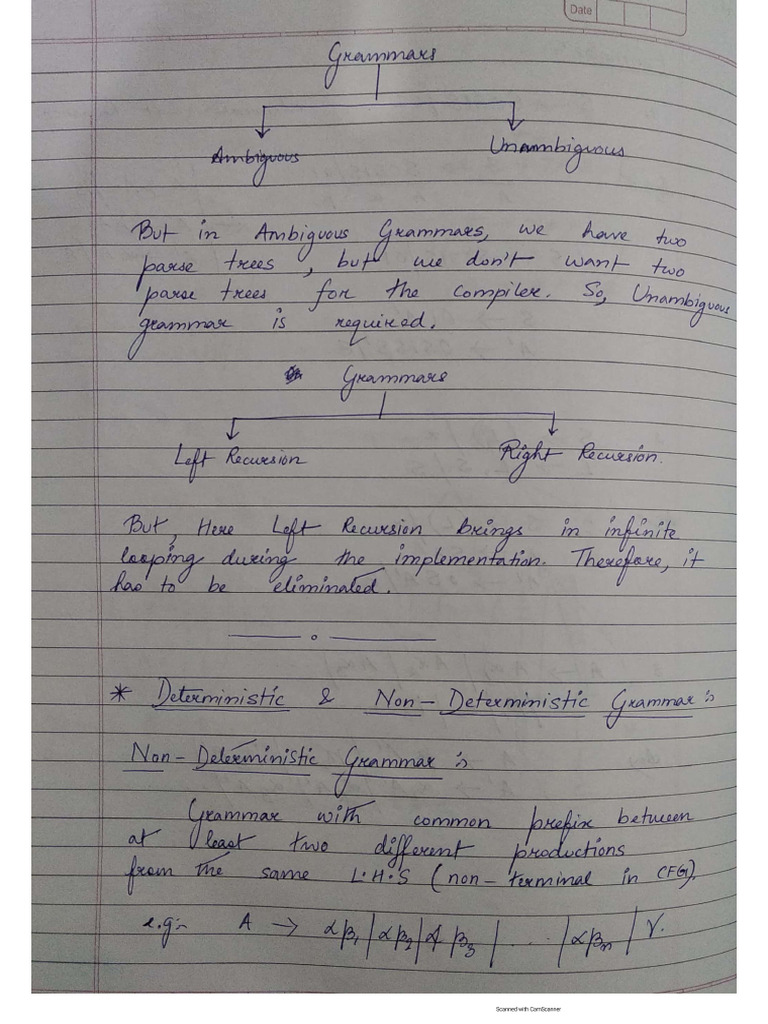 Date
Grammars
Ambiguous Unambiguous
But in Ambiguous Grammars, we have two
parse trees, but we don't want two
parse trees for the compiler. So, Unambiguous
grammar is required.
Grammars
Left Recursion Right Recursion.
But, Here Left Recursion brings in infinite
looping during the implementation. Therefore, it
has to be eliminated.
* Deterministic & Non-Deterministic Grammar :-
Non-Deterministic Grammar :-
Grammar with common prefix between
at least two different productions
from the same L.H.S (non-terminal in CFG).
e.g:- A → αβ₁ | αβ₂ | αβ₃ | ... | αβₙ | γ.
Scanned with CamScanner